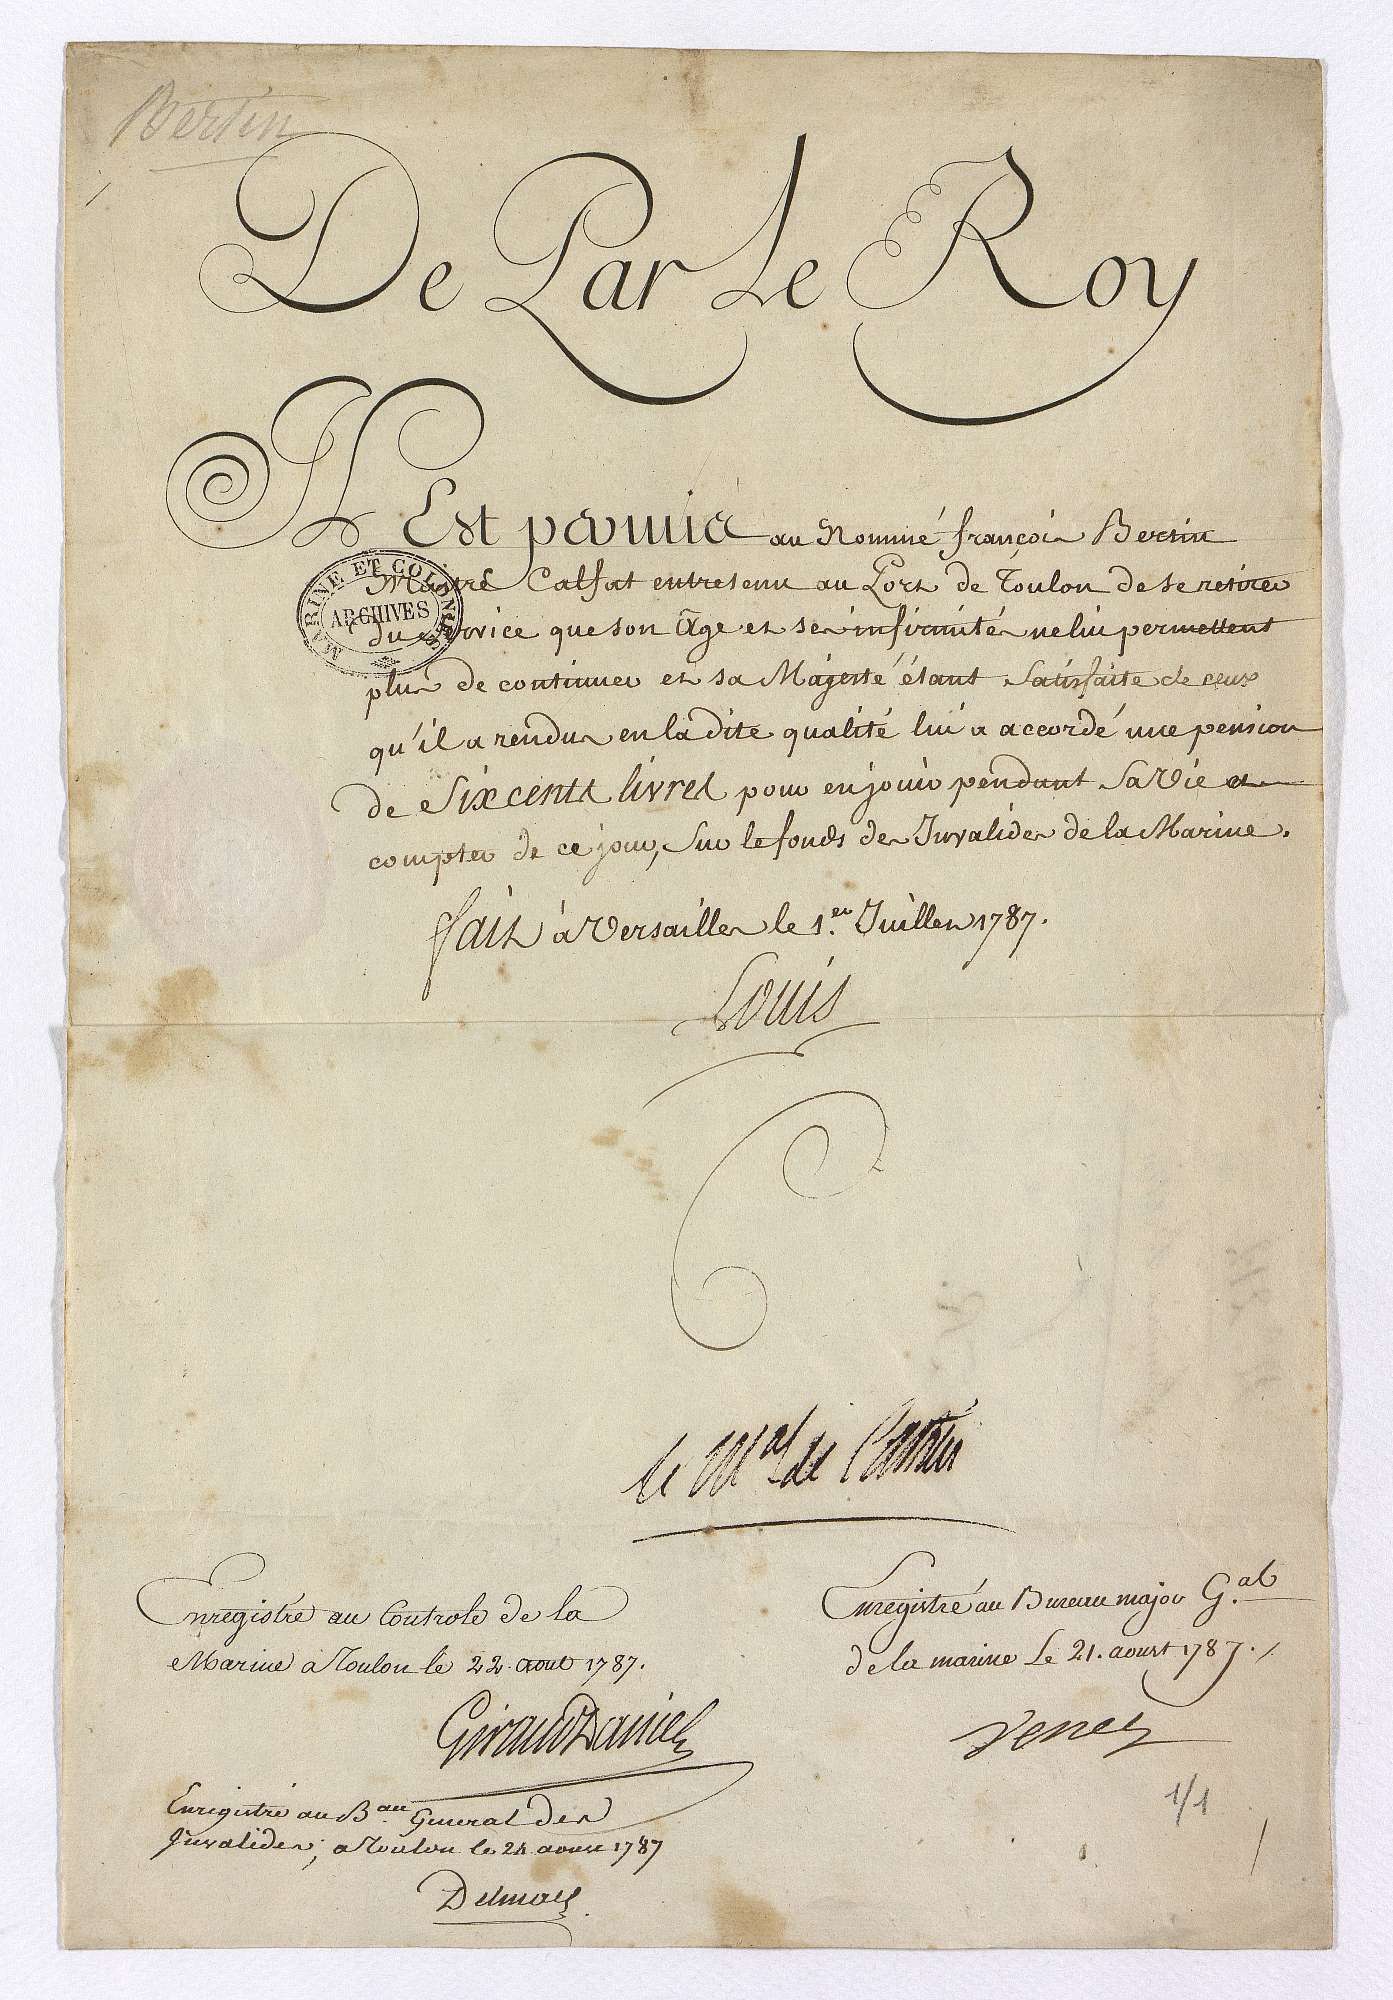 Bertin
De Par Le Roy
Il Est permis au Nommé françois Bertin
Maitre Calfat entretenu au Port de Toulon de se retirer
du service que son Âge et ses infirmités ne lui permettent
plus de continuer et sa Majesté étant Satisfaite de ceux
qu'il a rendus en la dite qualité lui a accordé une pension
de Six cents livres pour en jouir pendant Sa Vie a
compter de ce jour, Sur le fonds des Invalides de la Marine.
fait à Versailles le 1.er Juillet 1787.
Louis
MARINE ET COLONIES
ARCHIVES
le Mal de Castries
Enregistré au Controle de la
Marine a Toulon le 22 Aout 1787.
Giraud Daniel
Enregistré au Bureau major G.al
de la marine Le 21. aoust 1787.
Enregistré au B.au General des
Invalides, a Toulon le 24 aoust 1787
1/1